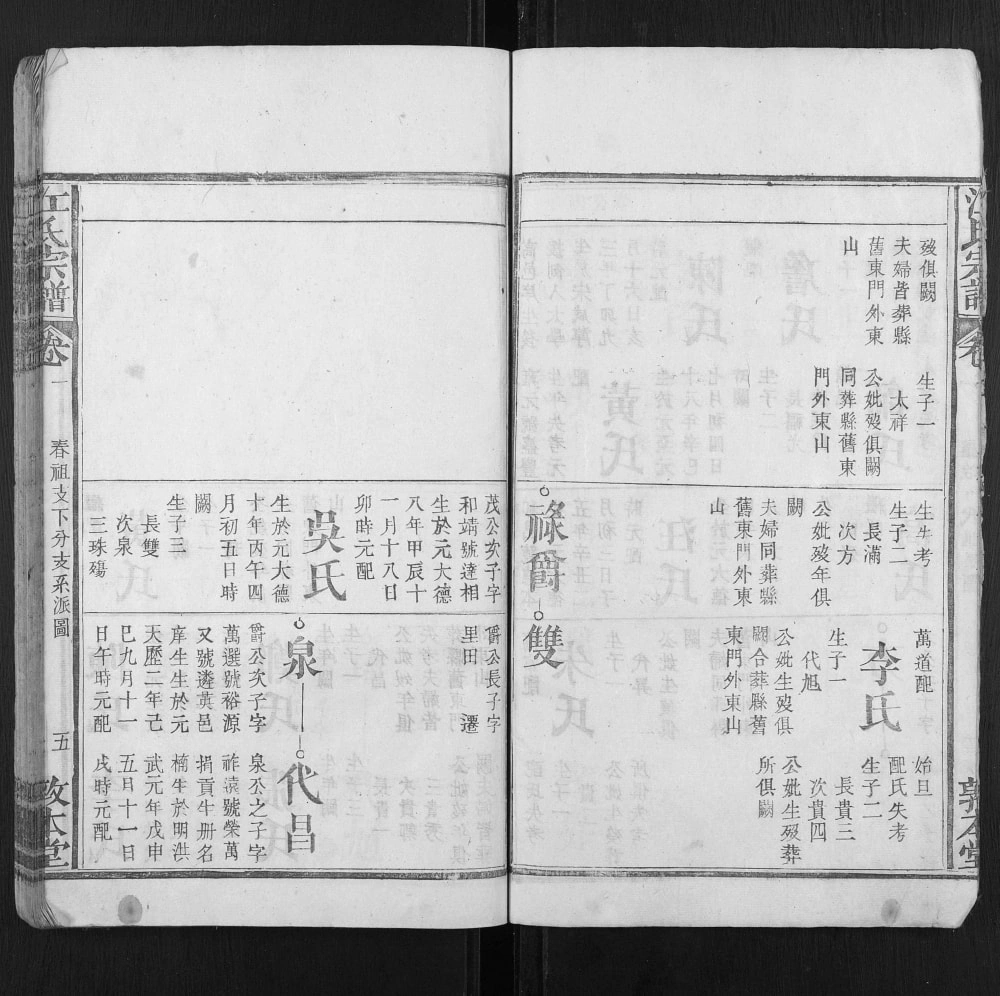 江氏宗譜
敦本堂
歿俱闕
夫婦皆葬縣
舊東門外東
山
生子一
太祥
公妣歿俱闕
同葬縣舊東
門外東山
生生考
生子二
長滿
次方
公妣歿年俱
闕
夫婦同葬縣
舊東門外東
山
祿爵
萬道配
李氏
生子一
代旭
公妣生歿俱
闕合葬縣舊
東門外東山
雙
始旦
配氏失考
生子二
長貴三
次貴四
公妣生歿葬
所俱闕
茂公次子字
和靖號達相
生於元大德
八年甲辰十
一月十八日
卯時元配
吳氏
生於元大德
十年丙午四
月初五日時
闕
生子三
長雙
次泉
三珠殤
爵公長子字
里田 遷
泉
爵公次子字
萬選號裕源
又號遴英邑
庠生生於元
天歷二年己
巳九月十一
日午時元配
代昌
泉公之子字
祚濱號榮萬
捐貢生册名
楠生於明洪
武元年戊申
五月十一日
戌時元配
江氏宗譜
卷一
春祖支下分支系派圖
五
敦本堂